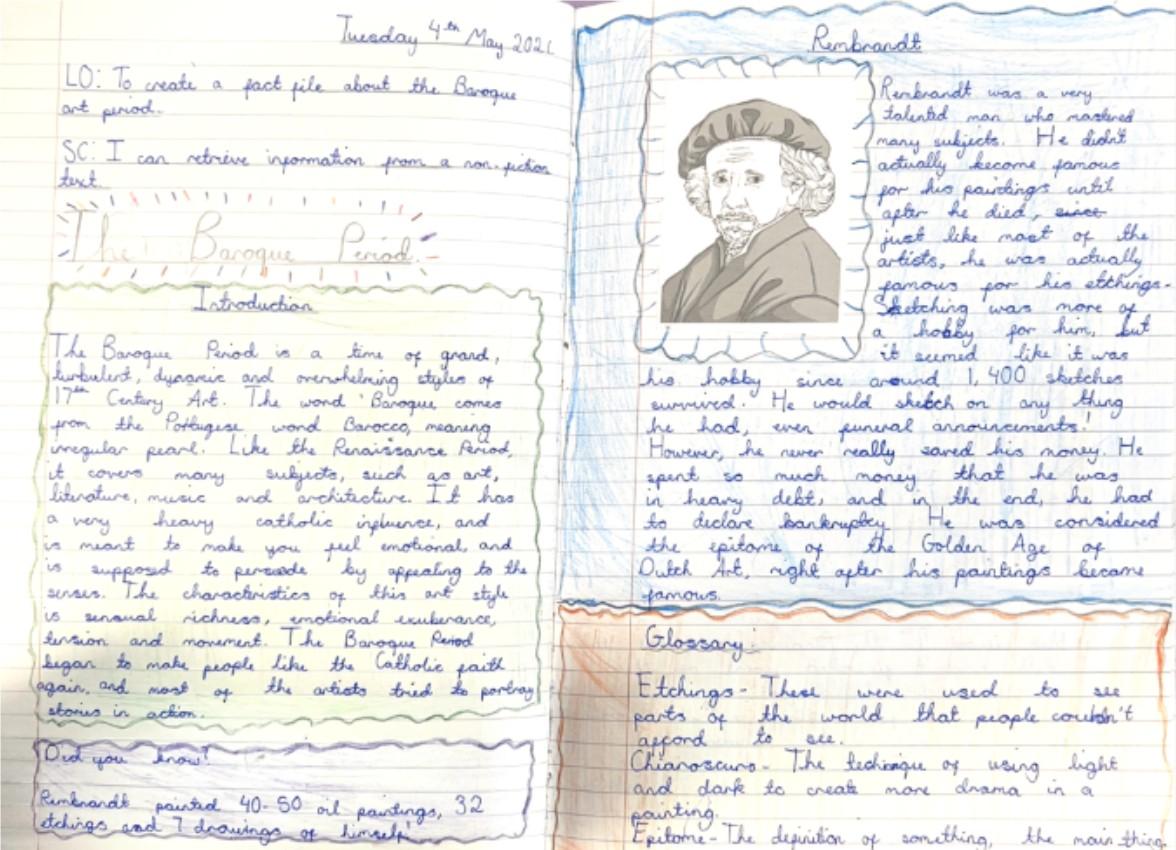 Tuesday 4th May 2021
LO: To create a fact file about the Baroque
art period.
SC: I can retrieve information from a non-fiction
text.
The Baroque Period
Introduction
The Baroque Period is a time of grand,
turbulent, dynamic and overwhelming styles of
17th Century Art. The word 'Baroque comes
from the Portugese word Barocco, meaning
irregular pearl. Like the Renaissance Period,
it covers many subjects, such as art,
literature, music and architecture. It has
a very heavy catholic influence, and
is meant to make you feel emotional, and
is supposed to persuede by appealing to the
senses. The characteristics of this art style
is sensual richness, emotional exuberance,
tension and movement. The Baroque Period
began to make people like the Catholic faith
again, and most of the artists tried to portray
stories in action.
Did you know!
Rembrandt painted 40-50 oil paintings, 32
etchings and 7 drawings of himself!
Rembrandt
Rembrandt was a very
talented man who mastered
many subjects. He didn't
actually become famous
for his paintings until
after he died, since
just like most of the
artists, he was actually
famous for his etchings.
Sketching was more of
a hobby for him, but
it seemed like it was
his hobby since around 1,400 sketches
survived. He would sketch on any thing
he had, even funeral announcements!
However, he never really saved his money. He
spent so much money that he was
in heavy debt, and in the end, he had
to declare bankruptcy. He was considered
the epitome of the Golden Age of
Dutch Art, right after his paintings became
famous.
Glossary:
Etchings - These were used to see
parts of the world that people couldn't
afford to see.
Chiaroscuro - The technique of using light
and dark to create more drama in a
painting.
Epitome - The definition of something, the main thing